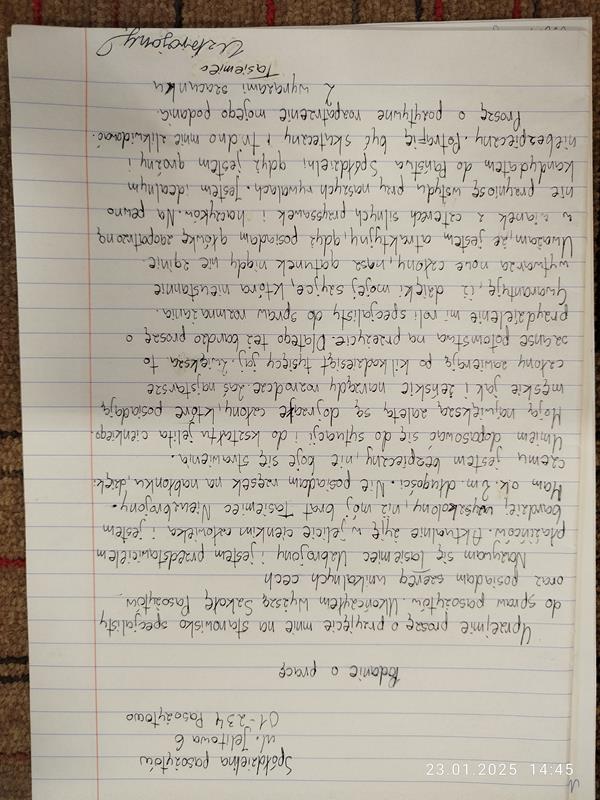 Spółdzielna pasożytów
ul. Jelitowa 6
01-234 Pasożytowo
Podanie o pracę
Uprzejmie proszę o przyjęcie mnie na stanowisko specjalisty
do spraw pasożytów. Ukończyłem Wyższą Szkołę Pasożytów
oraz posiadam szereg unikalnych cech
Nazywam się Tasiemiec Uzbrojony i jestem przedstawicielem
płazińców. Aktualnie żyję w jelicie cienkim człowieka i jestem
bardziej wyszkolony, niż mój brat Tasiemiec Nieuzbrojony.
Mam ok. 2m długości. Nie posiadam rzęsek na nabłonku, dzięki
czemu jestem bezpieczny, nie boję się strawienia.
Umiem dopasować się do sytuacji i do kształtu jelita cienkiego.
Moją największą zaletą są dojrzałe człony, które posiadają
męskie jak i żeńskie narządy rozrodcze. Zaś najstarsze
człony zawierają po kilkadziesiąt tysięcy jaj. Zwiększa to
szanse potomstwa na przeżycie. Dlatego też bardzo proszę o
przydzielenie mi roli specjalisty do spraw rozmnażania.
Gwarantuję, iż dzięki mojej szyjce, która nieustannie
wytwarza nowe człony, nasz gatunek nigdy nie zginie.
Uważam, że jestem atrakcyjny, gdyż posiadam główkę zaopatrzoną
w wianek z czterech silnych przyssawek i haczyków. Na pewno
nie przyniosę wstydu przy naszych rywalach. Jestem idealnym
kandydatem do Państwa Spółdzielni, gdyż jestem groźny i
niebezpieczny. Potrafię być skuteczny i trudno mnie zlikwidować.
Proszę o pozytywne rozpatrzenie mojego podania.
Z wyrazami szacunku
Tasiemiec
Uzbrojony
23.01.2025 14:45